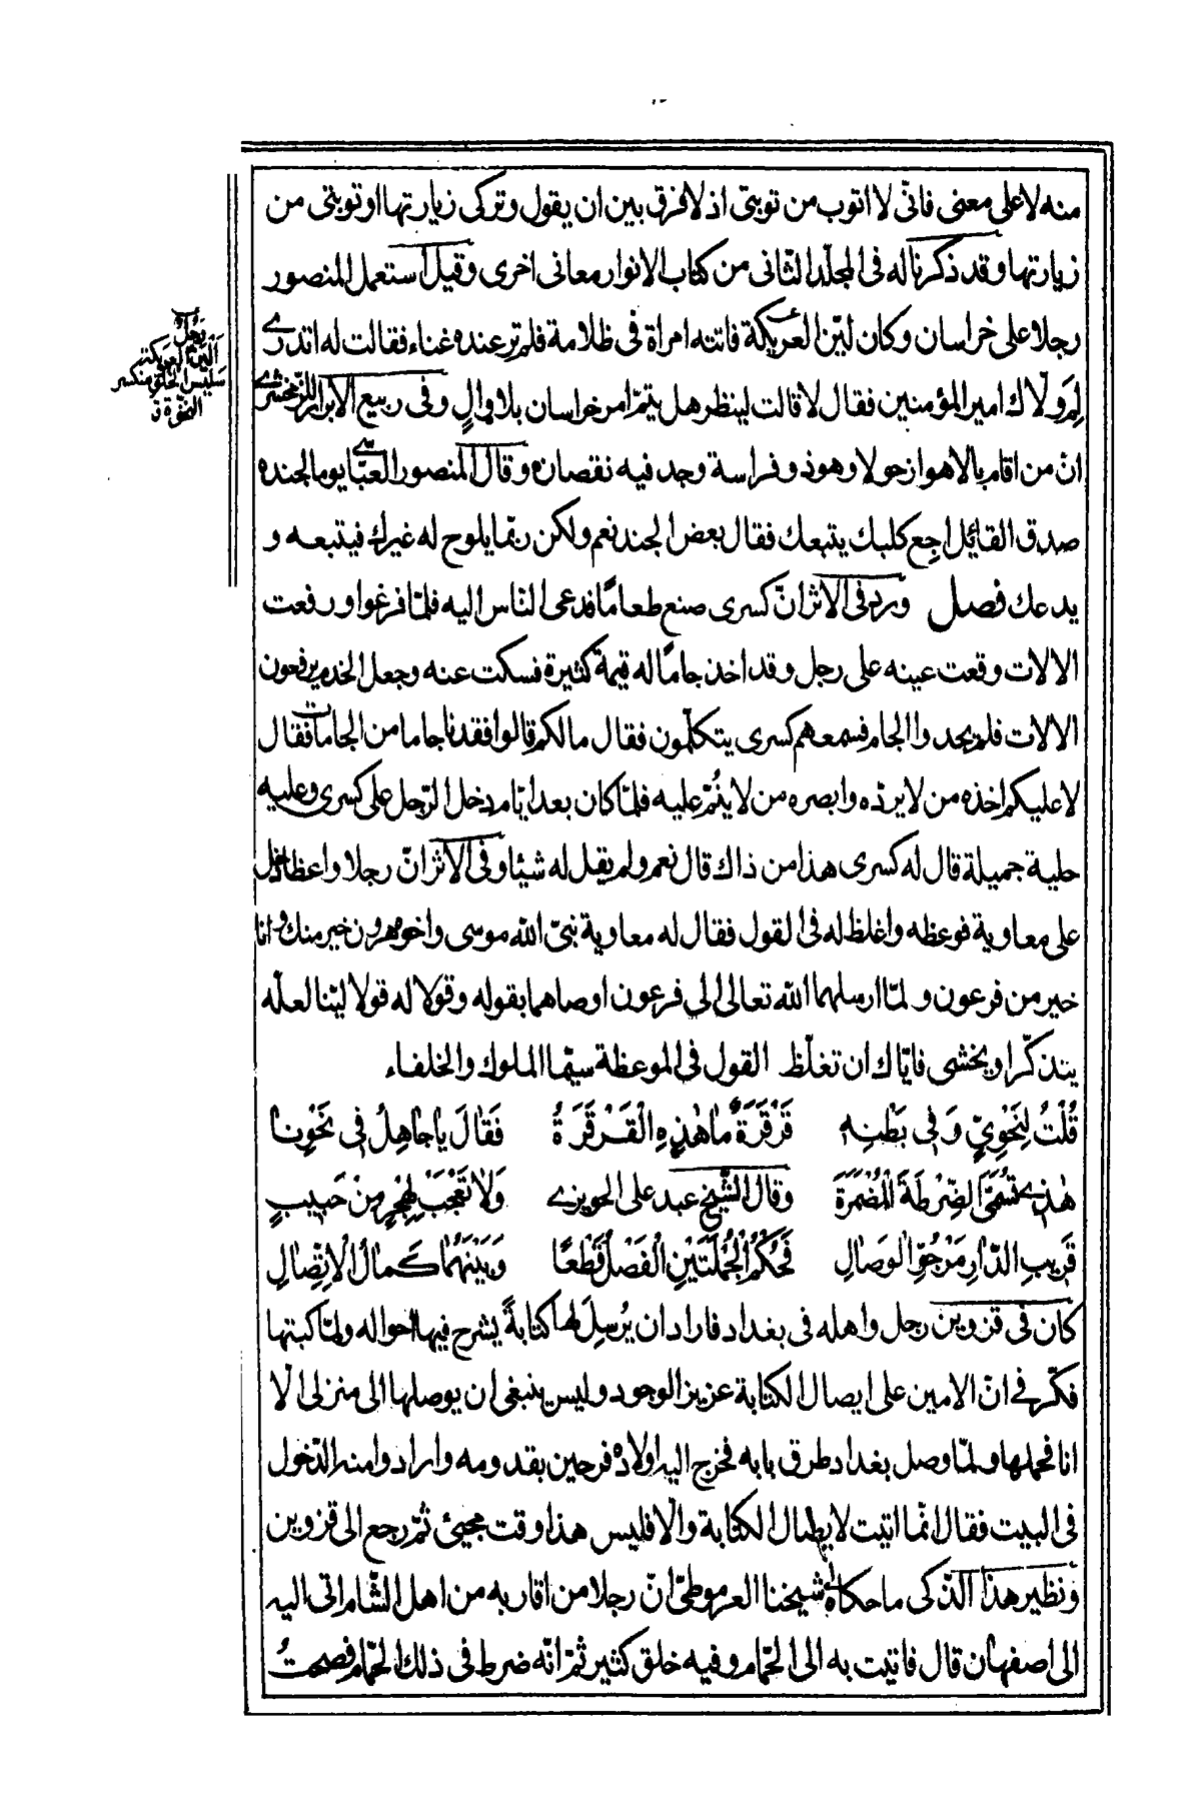 منه لا على معنى فانّى لا اتوب من توبتى اذ لا فرق بين ان يقول وتركى زيارتها او توبتى من
زيارتها وقد ذكرنا له فى المجلّد الثّانى من كتاب الانوار معانى اخرى وقيل استعمل المنصور
رجلا على خراسان وكان ليّن العريكة فاتته امراة فى ظلامة فلم تر عنده غناء فقالت له اتدرى
لِمَ ولّاك امير المؤمنين فقال لا قالت لينظر هل يتمّ امر خراسان بلا والٍ وفى ربيع الابرار للزّمخشرى
انّ من اقام بالاهواز حولا وهو ذو فراسة وجد فيه نقصان وقال المنصور العبّاسى يوما لجنده
صدق القائل اجع كلبك يتبعك فقال بعض الجند نعم ولكن ربّما يلوح له غيرك فيتبعه و
يدعك فصل ورد فى الاثر انّ كسرى صنع طعامًا فدعى النّاس اليه فلمّا فرغوا ورفعت
الالات وقعت عينه على رجل وقد اخذ جامًا له قيمة كثيرة فسكت عنه وجعل الخدم يرفعون
الالات فلم يجدوا الجام فسمعهم كسرى يتكلّمون فقال مالكم قالوا فقدنا جاما من الجامات فقال
لا عليكم اخذه من لا يردّه وابصره من لا ينُمّ عليه فلمّا كان بعد ايّام دخل الرّجل على كسرى وعليه
حلية جميلة قال له كسرى هذا من ذاك قال نعم ولم يقل له شيئا وفى الاثر انّ رجلا واعظا دخل
على معاوية فوعظه واغلظ له فى القول فقال له معاوية نبىّ الله موسى واخوه هرون خير منك وانا
خير من فرعون ولمّا ارسلهما الله تعالى الى فرعون اوصاهما بقوله وقولا له قولا ليّنا لعلّه
يتذكّر او يخشى فايّاك ان تغلّظ القول فى الموعظة سيّما الملوك والخلفاء
قُلْتُ لِنَحْوِىٍّ وَفى بَطْنِهِ قَرْقَرَةٌ مٰا هٰذِهِ الْقَرْقَرَةُ فَقٰالَ يا جٰاهِلُ فى نَحْوِنٰا
هٰذى تُسَمَّى الضِرْطَةَ الْمُضْمَرَةَ وقال الشّيخ عبد على الحويزى وَلاٰ تَعْجَبْ لِهَجْرٍ مِنْ حَبيبٍ
قَريبِ الدّٰارِ مَرْجُوِّ الْوِصٰالِ فَحُكْمُ الْجُمْلَتَيْنِ الْفَصْلُ قَطْعًا وَبَيْنَهُمٰا كَمٰالُ الْاِتِّصٰالِ
كان فى قزوين رجل واهله فى بغداد فاراد ان يُرسِلَ لها كتابةً يشرح فيها احواله ولمّا كتبتها
فكّر فى انّ الامين على ايصال الكتابة عزيز الوجود وليس ينبغى ان يوصلها الى منزلى الّا
انا فحملها ولمّا وصل بغداد طرق بابه فخرج اليه اولاده فرحين بقدومه وارادوا منه الدّخول
فى البيت فقال انّما اتيت لايصال الكتابة والّا فليس هذا وقت مجيئى ثمّ رجع الى قزوين
ونظير هذا الذّكى ما حكاه شيخنا العرموطىّ انّ رجلا من اقاربه من اهل الشّام اتى اليه
الى اصفهان قال فاتيت به الى الحمّام وفيه خلق كثير ثمّ انّه ضرط فى ذلك الحمّام فصحتُ
رَجُلٌ
اللّيّن العريكة
سليس الخلق منكسر
النخوة ق